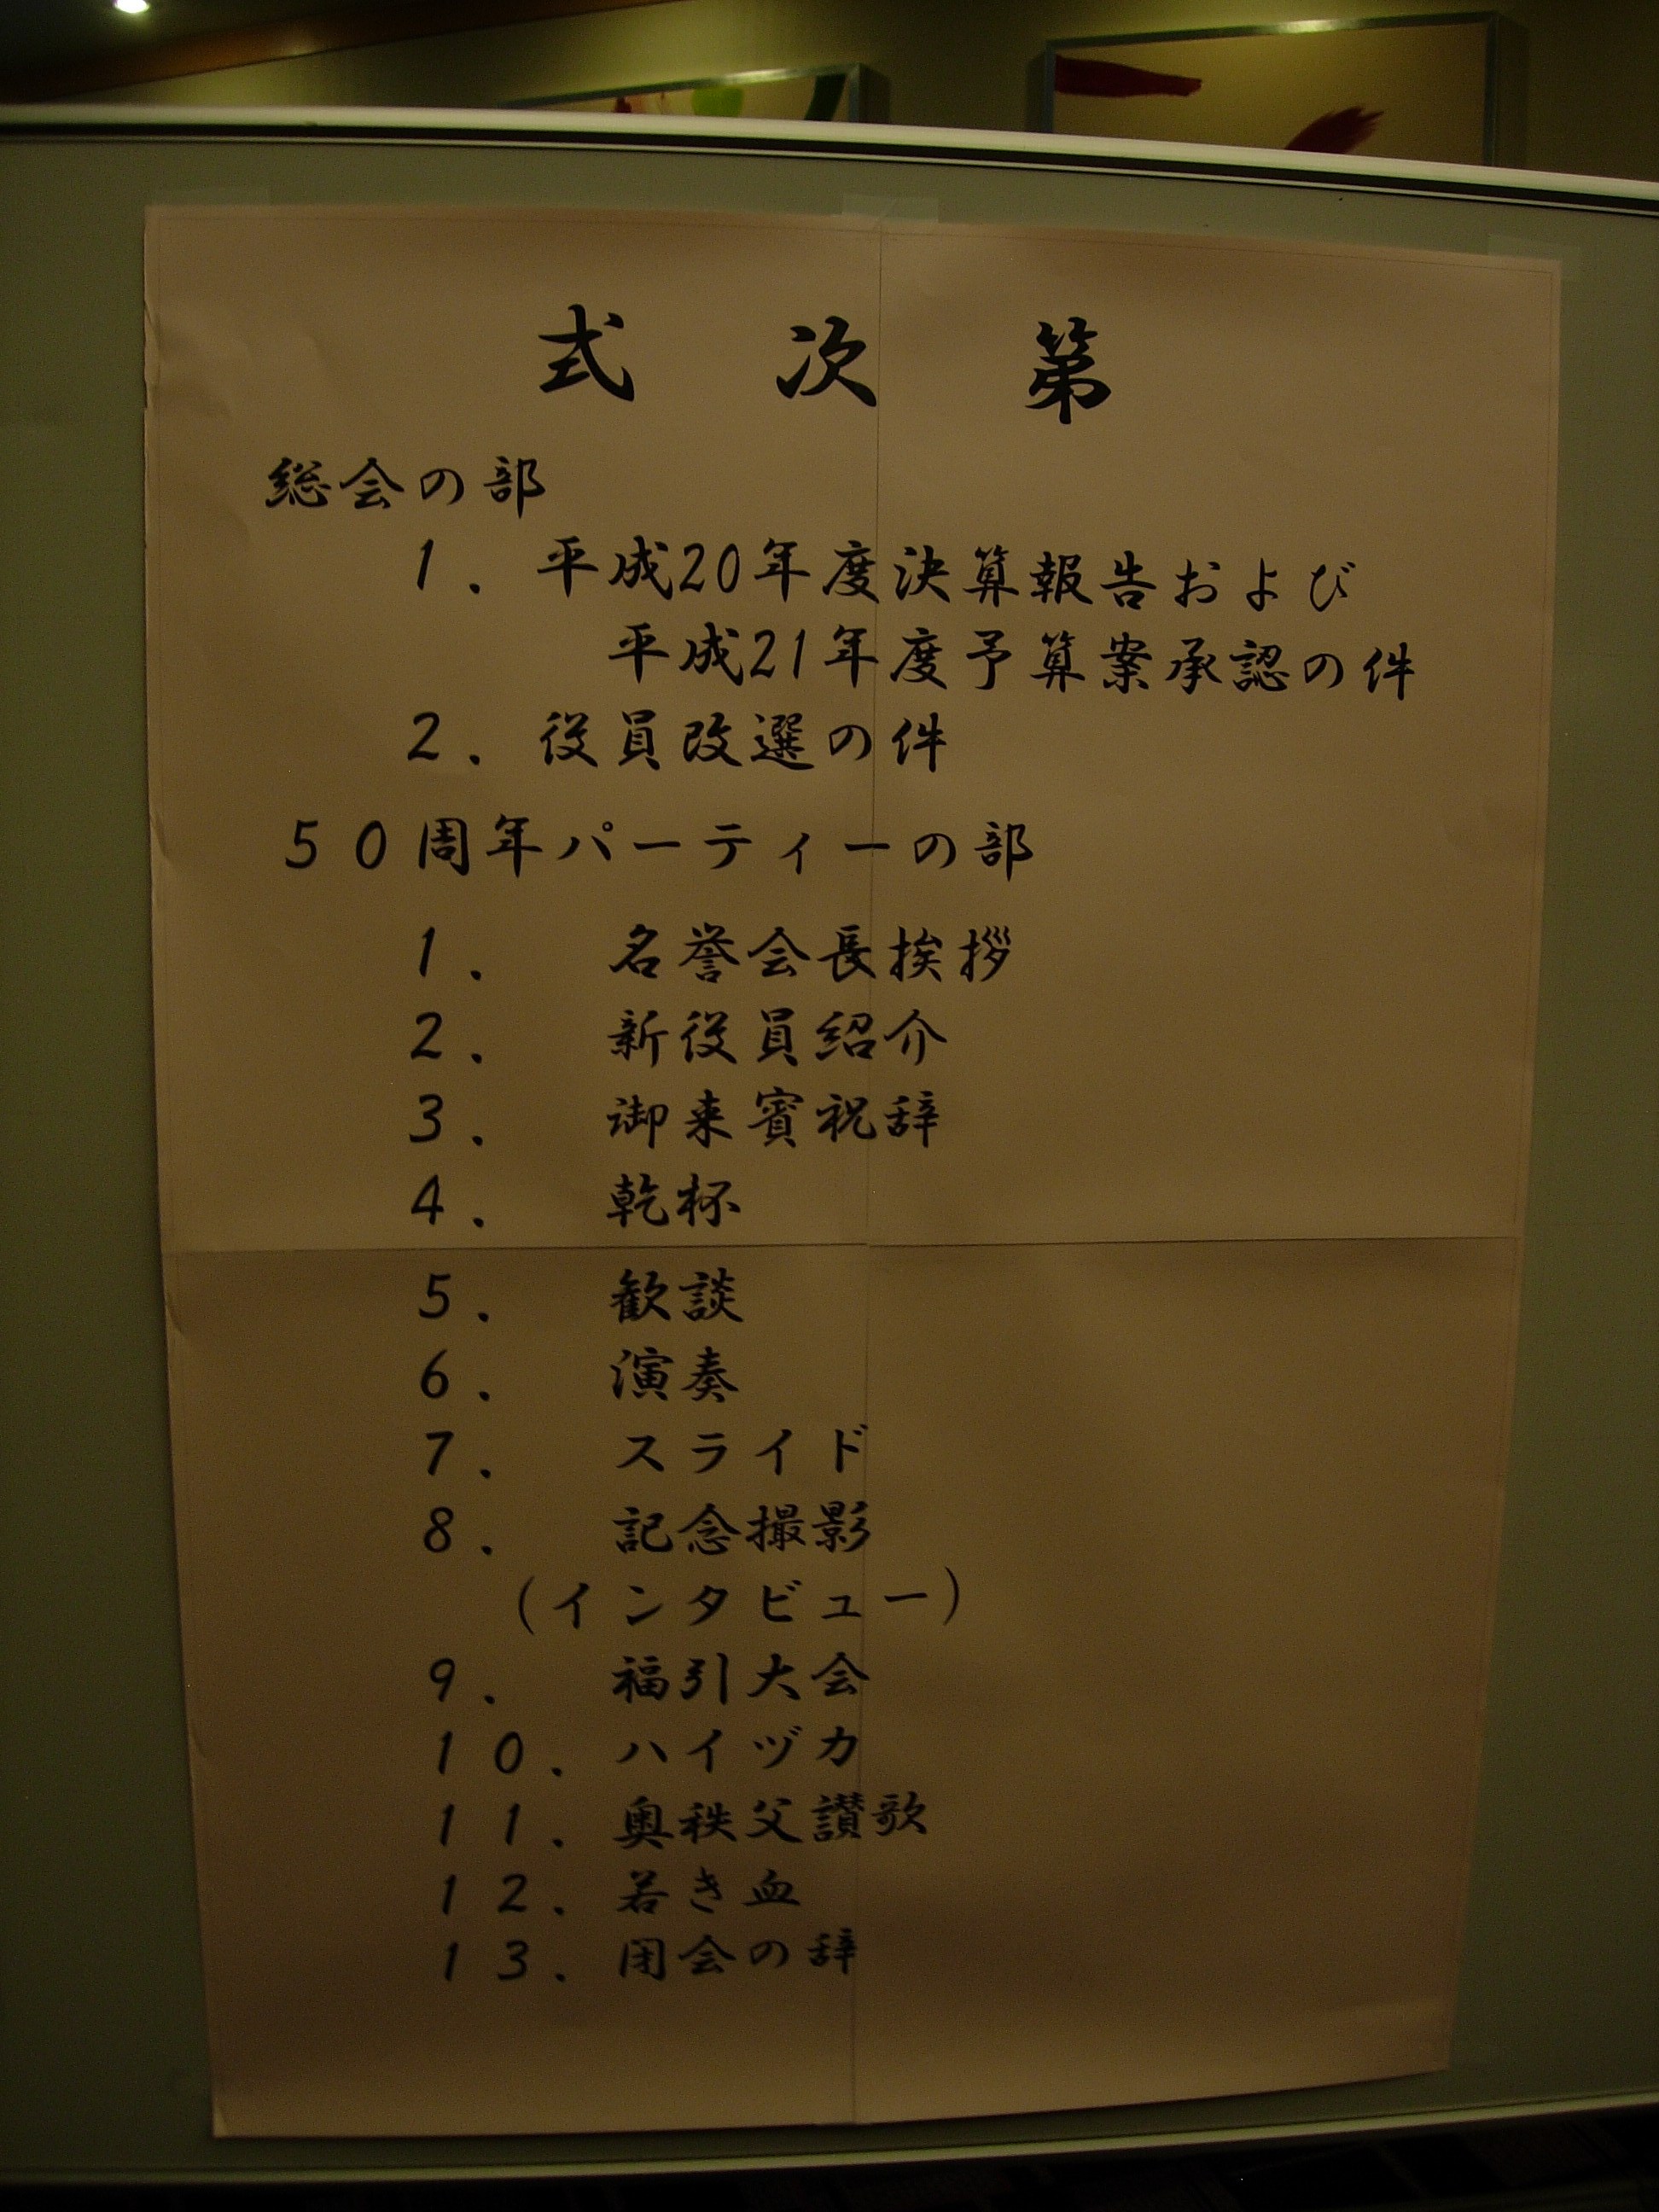 式次第
総会の部
1．平成20年度決算報告および
平成21年度予算案承認の件
2．役員改選の件
50周年パーティーの部
1．名誉会長挨拶
2．新役員紹介
3．御来賓祝辞
4．乾杯
5．歓談
6．演奏
7．スライド
8．記念撮影
（インタビュー）
9．福引大会
10．ハイヅカ
11．奥秩父讃歌
12．若き血
13．閉会の辞